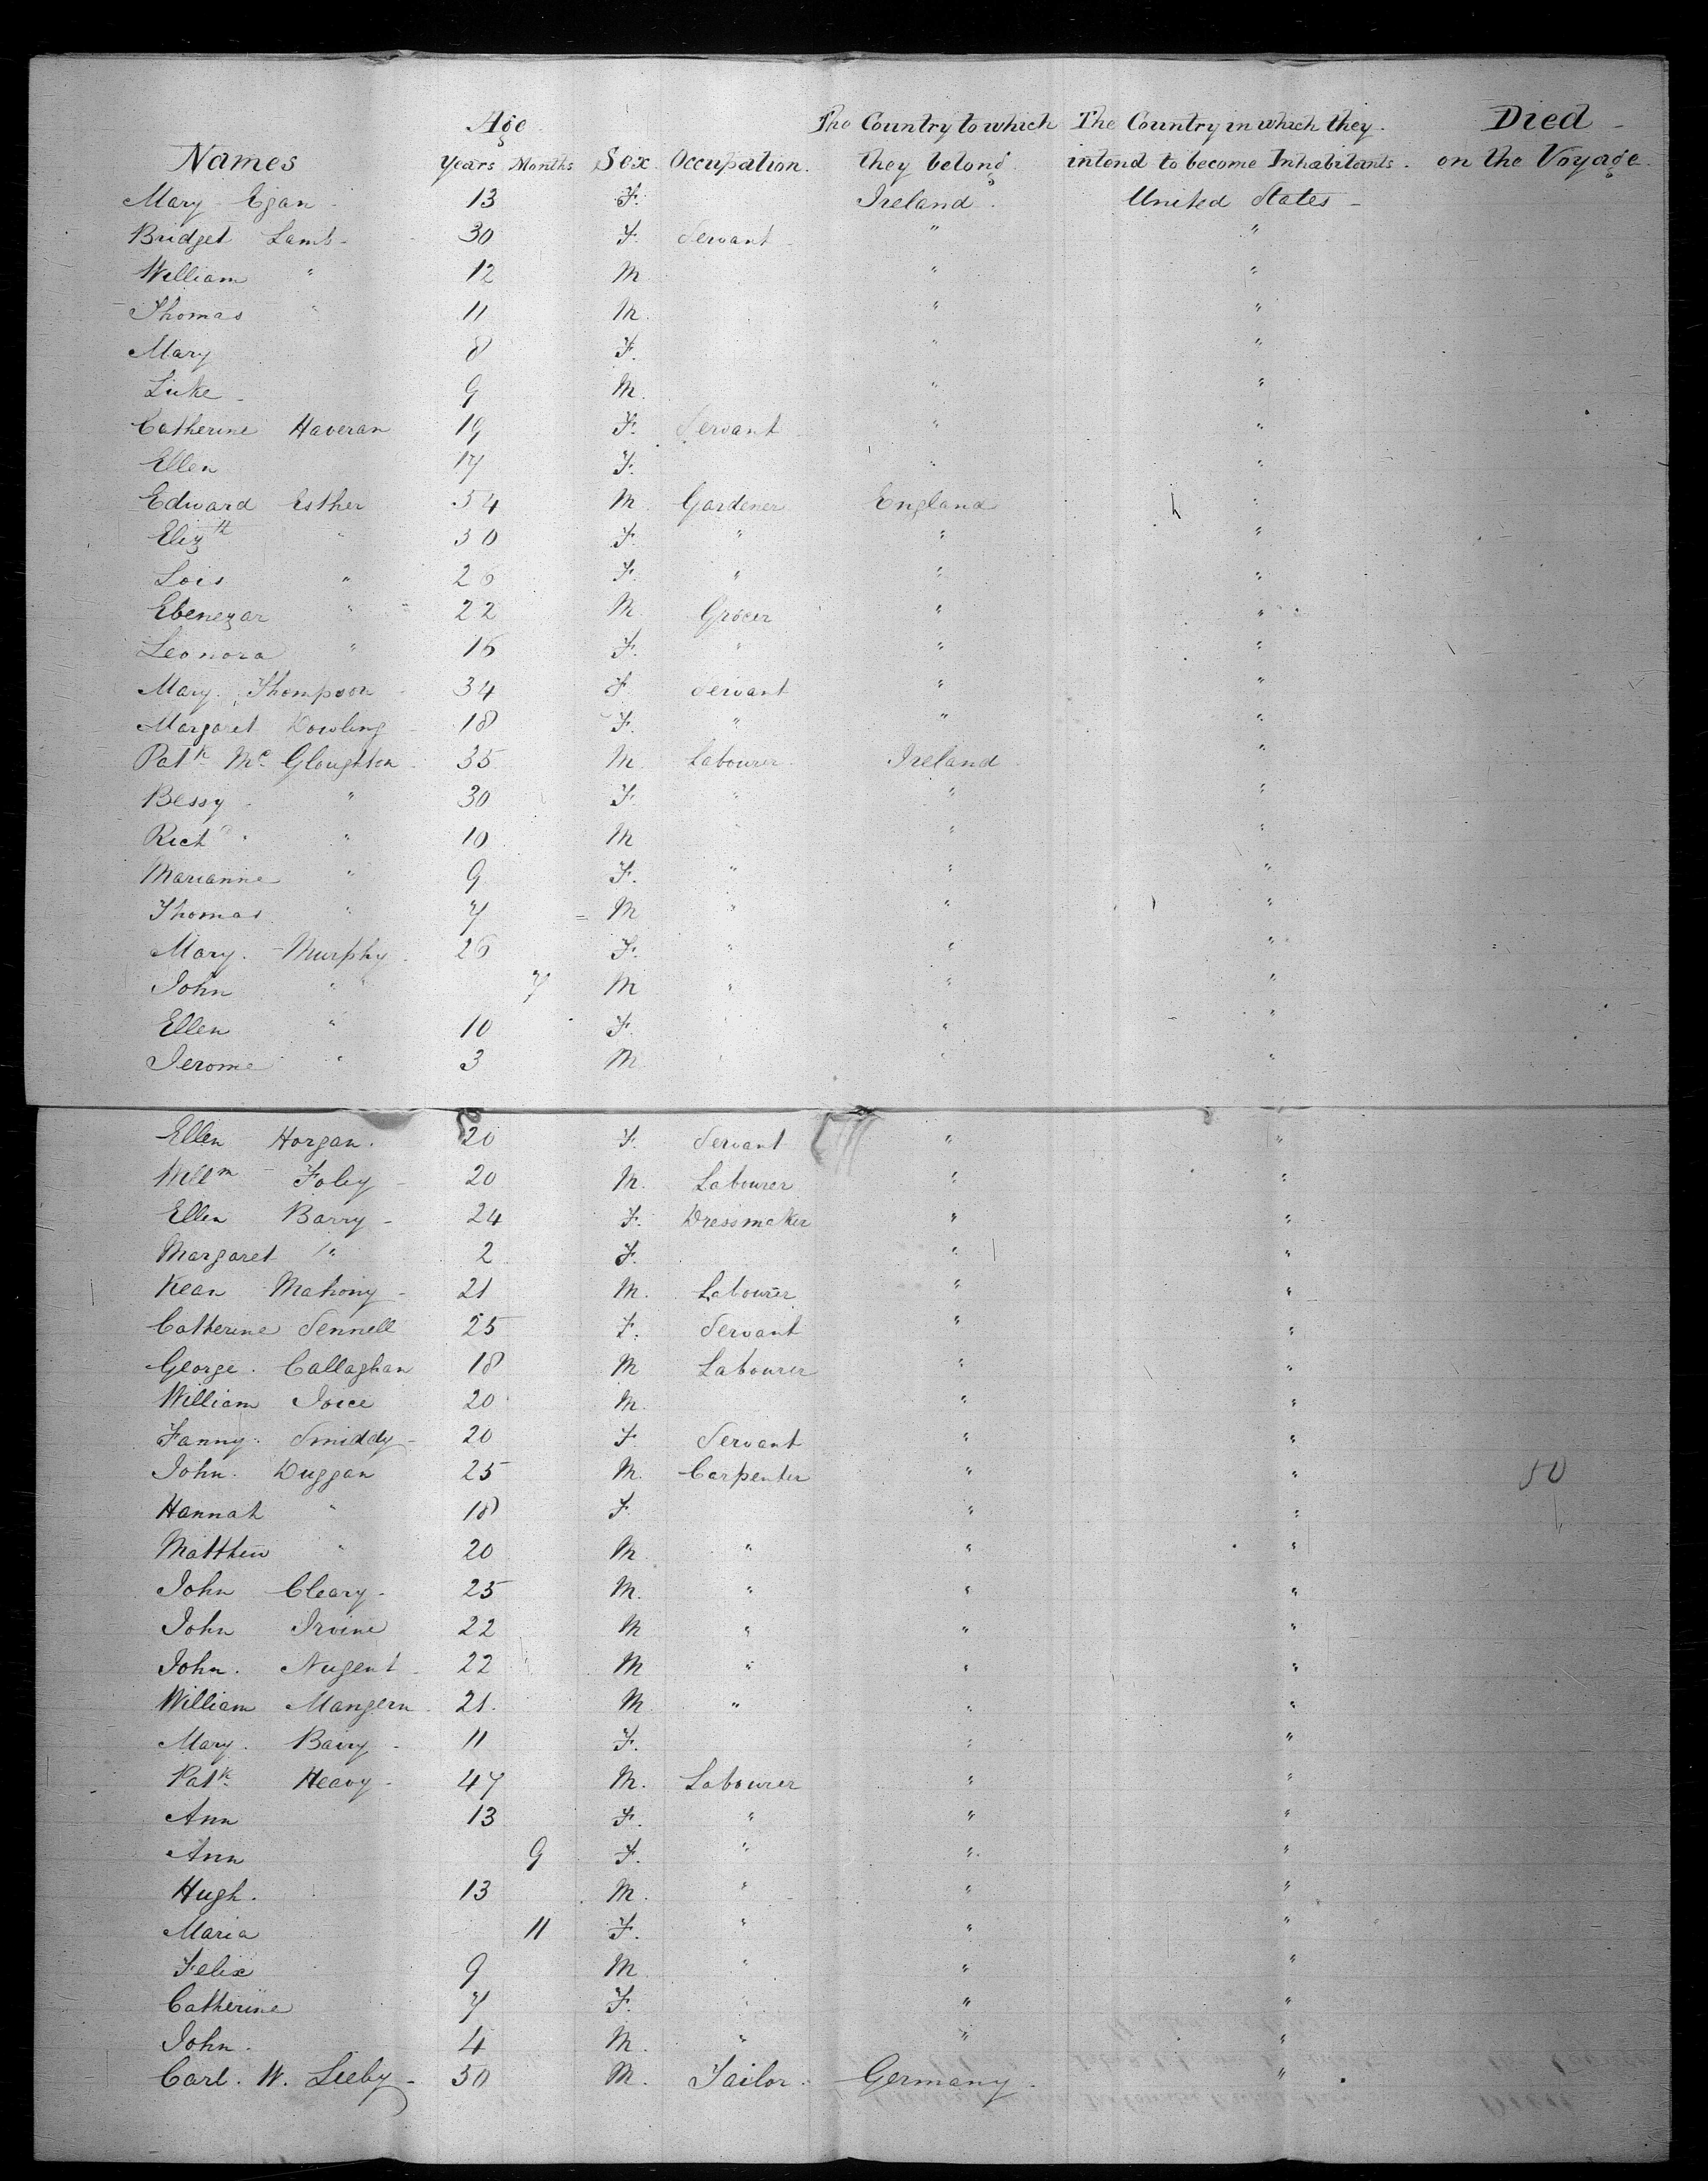 Age The Country to which The Country in which they Died
Names Years Months Sex Occupation. they belong intend to become Inhabitants. on the Voyage.
Mary Egan 13 F. Ireland United States
Bridget Lamb 30 F. Servant " "
William " 12 M " "
Thomas " 11 M. " "
Mary 8 F. " "
Luke 9 M. " "
Catherine Haveran 19 F. Servant " "
Ellen 17 F. " "
Edward Esther 54 M. Gardener England "
Elizth " 30 F. " " "
Lois " 26 F. " " "
Ebenezar " 22 M Grocer " "
Leonora " 16 F. " " "
Mary. Thompson 34 F Servant " "
Margaret Dowling 18 F. " " "
Patk Mc Gloughten 35 M. Labourer Ireland "
Bessy " 30 F. " " "
Richd " 10 M " " "
Marianne " 9 F. " " "
Thomas " 7 M " " "
Mary. Murphy 26 F. " " "
John " 7 M " " "
Ellen " 10 F. " "
Jerome " 3 M " " "
Ellen Horgan. 20 F. Servant " "
Willm Foley 20 M. Labourer " "
Ellen Barry 24 F. Dressmaker " "
Margaret " 2 F. " "
Kean Mahony 21 M. Labourer " "
Catherine Sennell 25 F. Servant " "
George. Callaghan 18 M Labourer " "
William Joice 20 M. " "
Fanny. Smiddy 20 F Servant " "
John. Duggan 25 M. Carpenter " " 50
Hannah " 18 F. " "
Matthew " 20 M " " "
John Cleary 25 M. " " "
John Irvine 22 M " " "
John. Nugent 22 M " " "
William Mangern 21. M " " "
Mary. Barry 11 F. " "
Patk Heavy 47 M. Labourer " "
Ann 13 F. " " "
Ann 9 F. " " "
Hugh. 13 M. " " "
Maria 11 F. " " "
Felix 9 M " " "
Catherine 7 F. " " "
John. 4 M. " " "
Carl. W. Lieby 30 M. Tailor. Germany. "